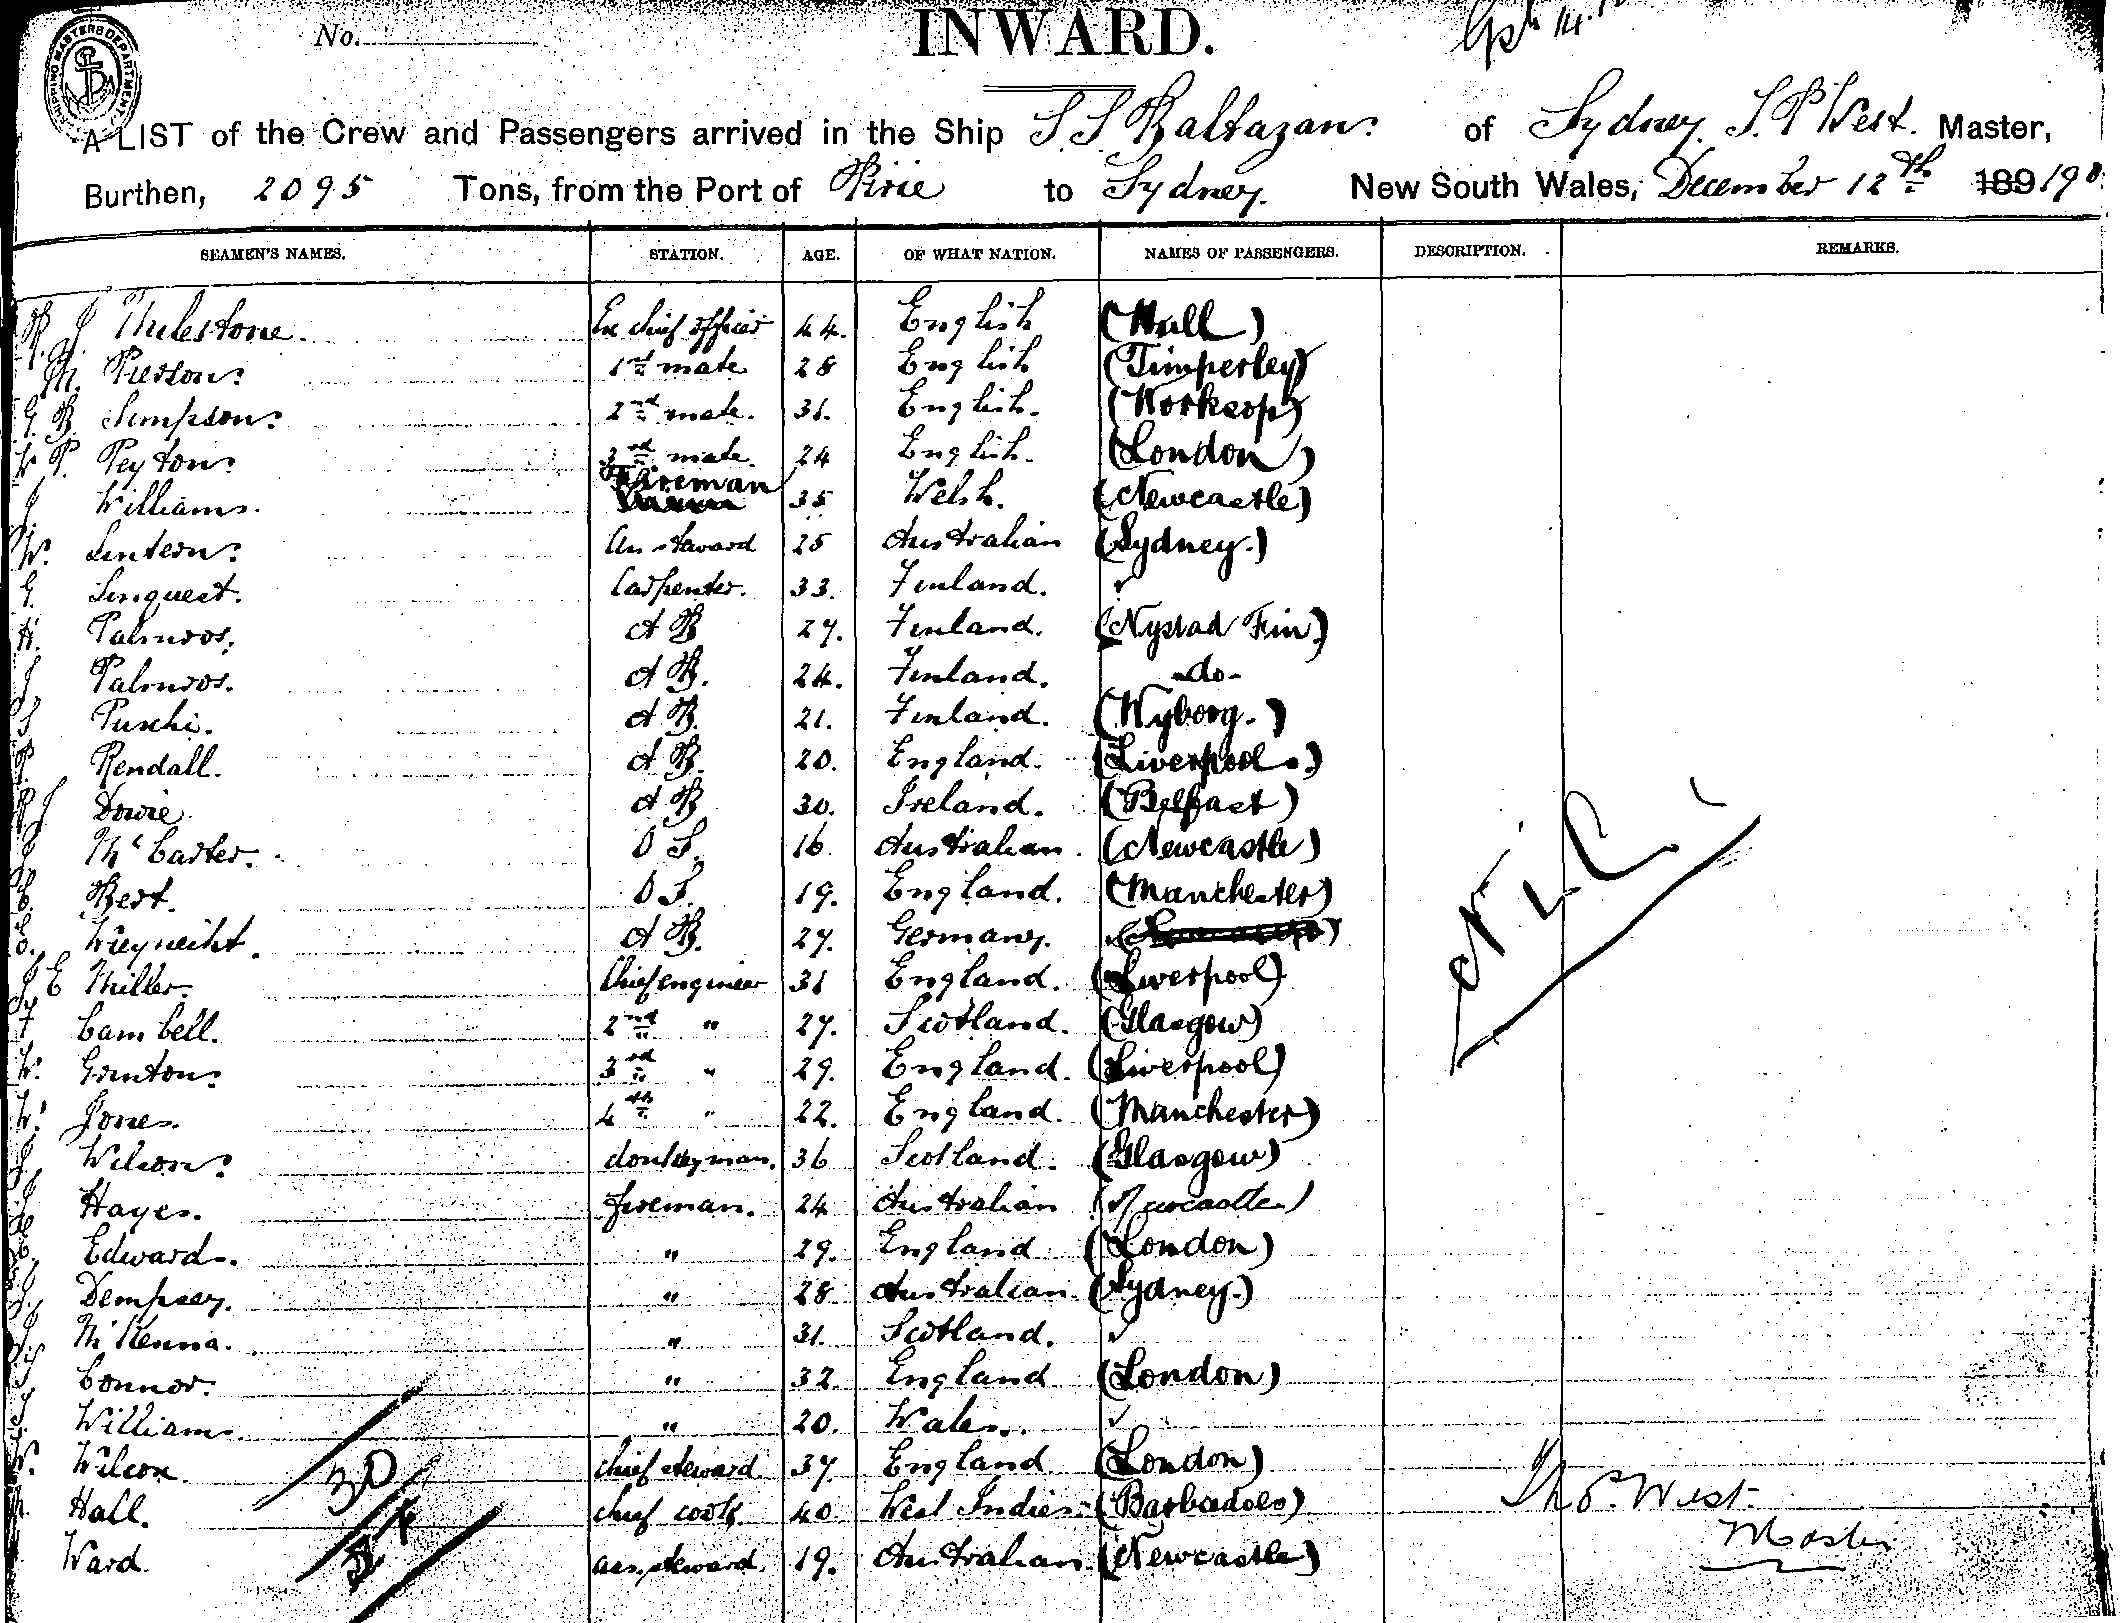 No.
INWARD.
SHIPPING MASTERS DEPARTMENT
A LIST of the Crew and Passengers arrived in the Ship S.S. Baltazan of Sydney. T. P. West. Master,
Burthen, 2095 Tons, from the Port of Pirie to Sydney. New South Wales, December 12th 189 190
SEAMEN'S NAMES. STATION. AGE. OF WHAT NATION. NAMES OF PASSENGERS. DESCRIPTION. REMARKS.
J Thilestone. Ex chief officer 44. English (Hull)
M. Pierson. 1st mate 28 English (Timperley)
G B Simpson. 2nd mate. 31. English. (Worksop)
W P. Peyton. 3rd mate. 24 English. (London)
J Williams. Fireman 35 Welsh. (Newcastle)
W. Lintern. steward 25 Australian (Sydney.)
G. Linquest. Carpenter. 33. Finland.
H. Palmroos. A B 27. Finland. (Nystad Fin)
J. Palmroos. A B. 24. Finland. -do-
Puschi. A B. 21. Finland. (Wyborg.)
P. Rendall. A B. 20. England. (Liverpool.)
R J Dowie A B 30. Ireland. (Belfast)
J McCarter. O S. 16 Australian. (Newcastle)
C. Bert. O S. 19. England. (Manchester)
A B. 27. Germany.
J E Miller. Chief engineer 31 England. (Liverpool)
Cambell. 2nd " 27. Scotland. (Glasgow)
W. Grinton. 3rd " 29. England. (Liverpool)
W. Jones. 4th " 22. England. (Manchester)
J. Wilson. donkeyman. 36 Scotland. (Glasgow)
J. Hayes. fireman. 24 Australian (Newcastle)
Edwards. " 29. England (London)
J. Dempsey. " 28 Australian (Sydney.)
J. McKenna. " 31. Scotland.
J Connor. " 32. England (London)
J. Williams. " 20. Wales.
W. Wilcox. chief steward. 37. England (London)
Hall. chief cook. 40 West Indies (Barbadoes)
Ward. ass. steward. 19. Australian. (Newcastle)
Nil
30
Thos. West.
Master